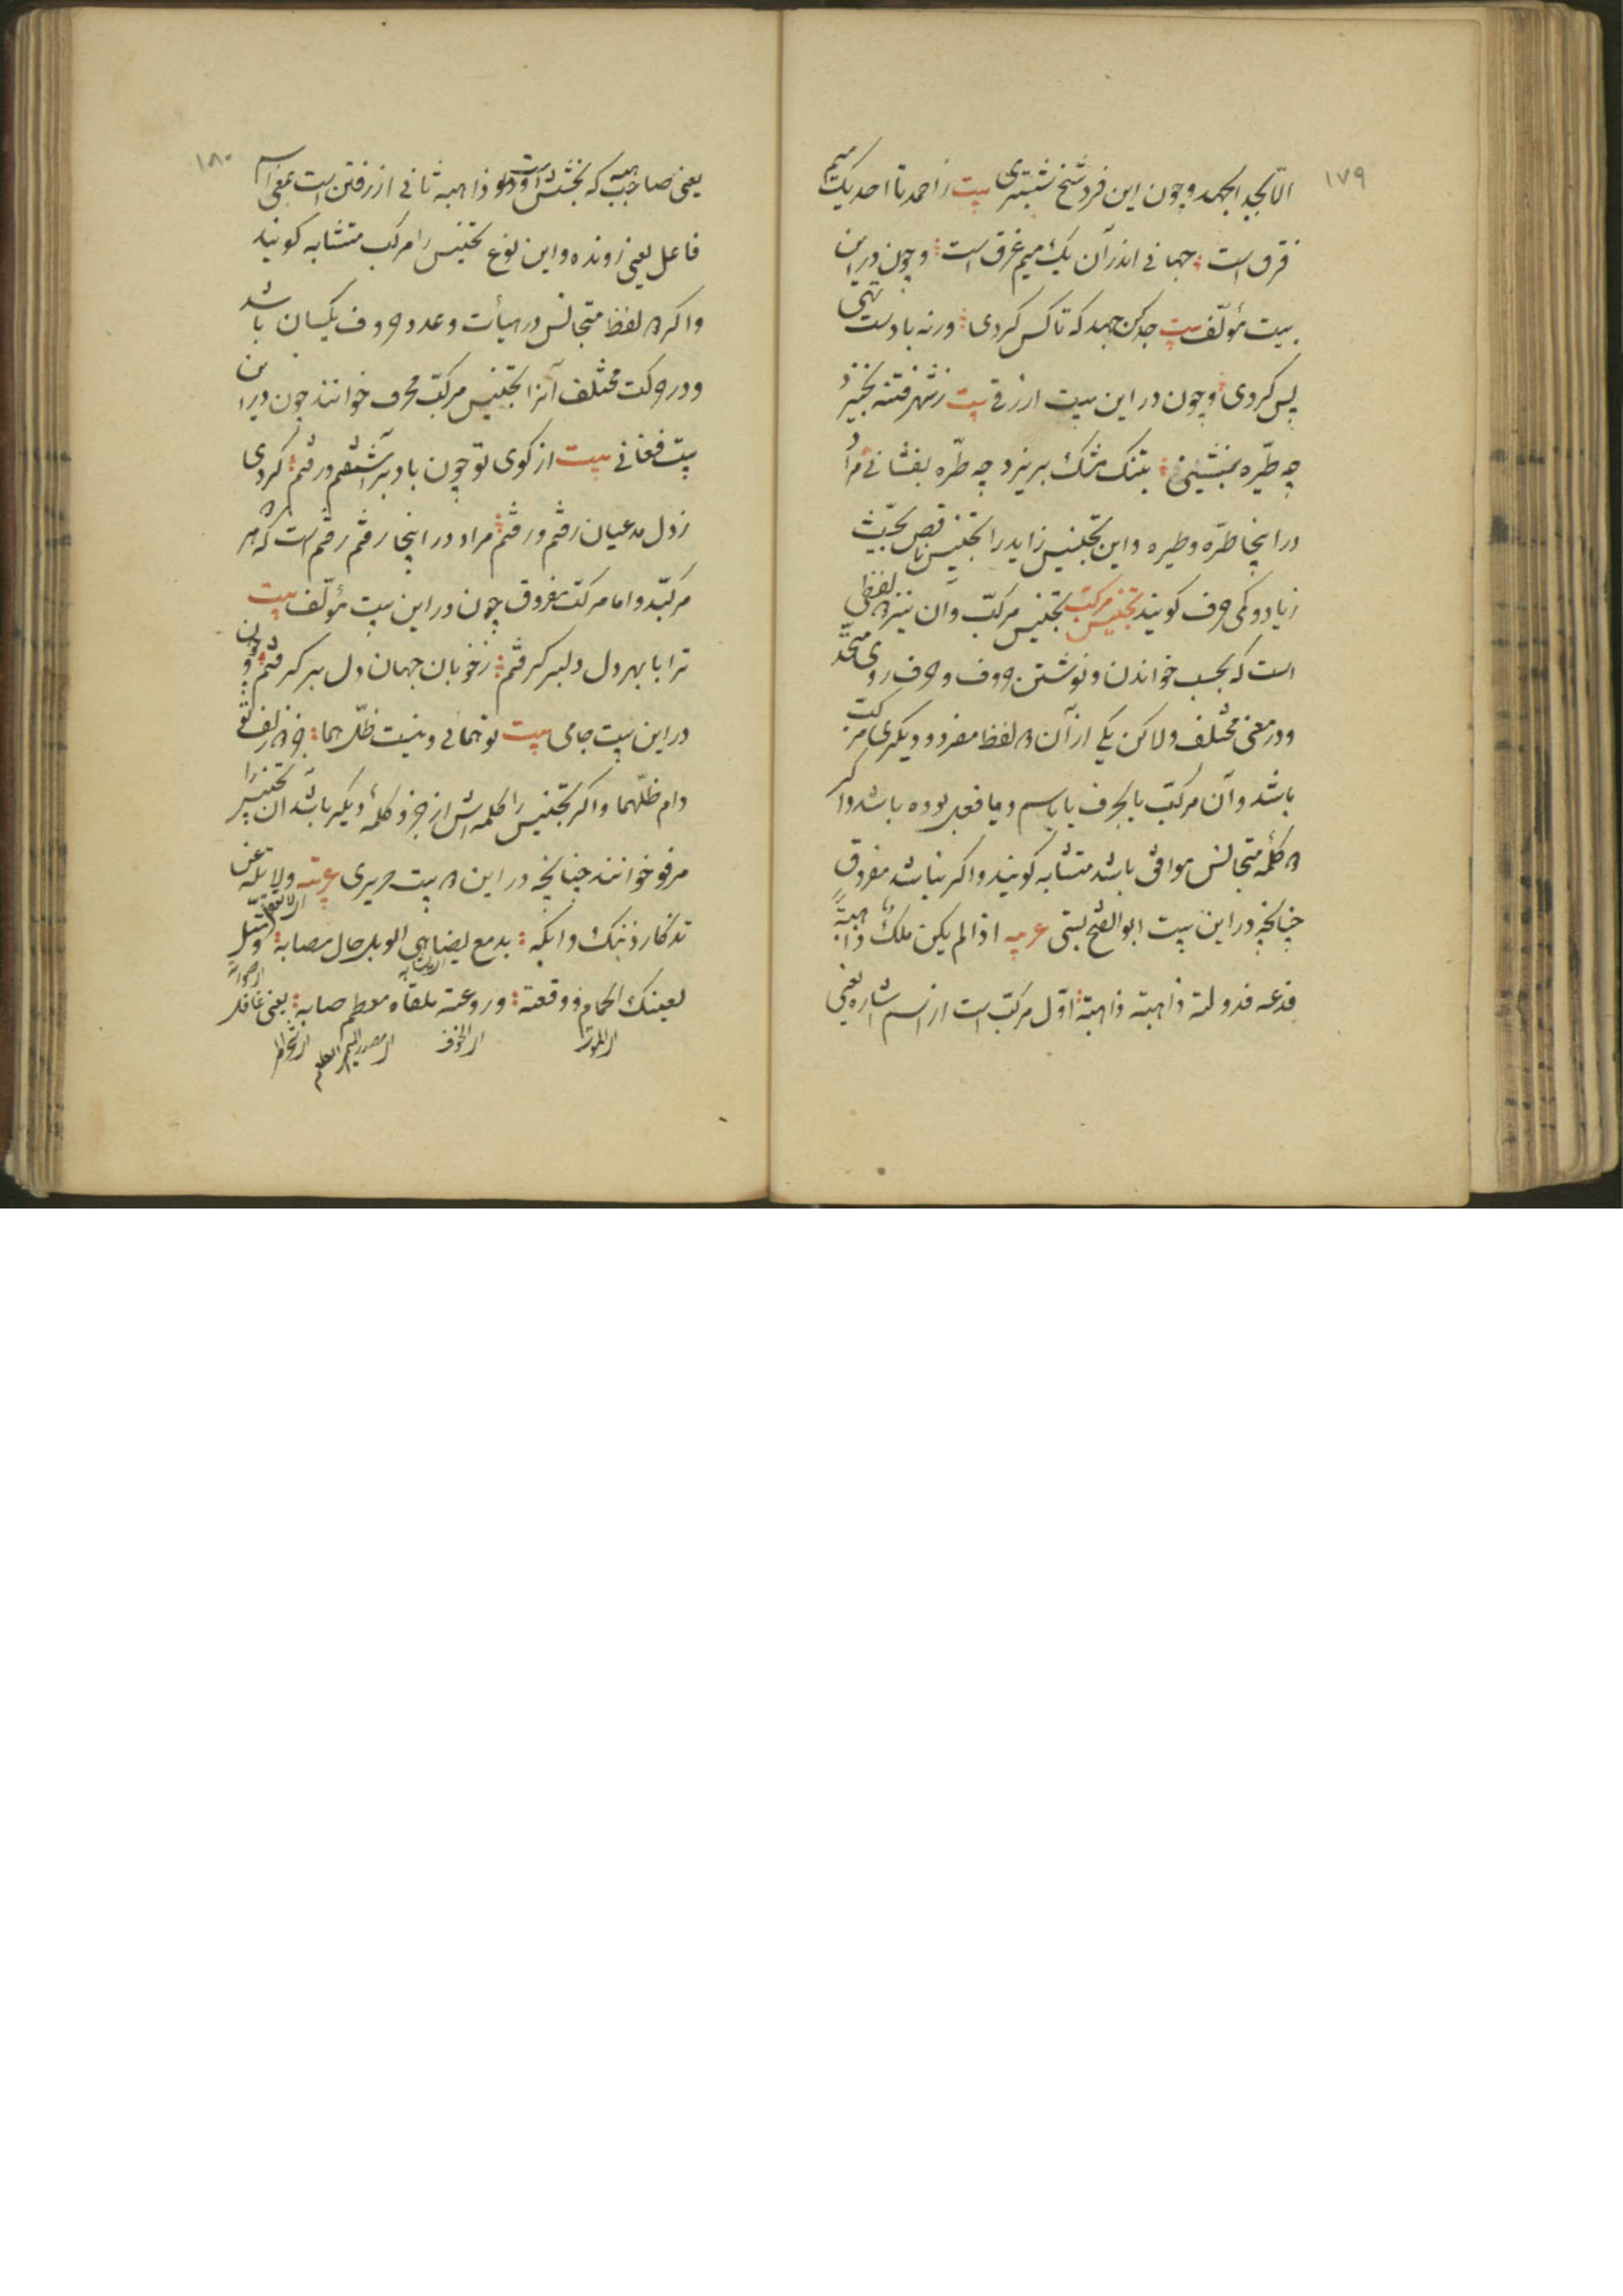 ١٧٩
الا بجد الجهد و چون این فرد شیخ شبستری بیت ز احمد تا احد یک میم
فرق است جهانی اندر آن یک میم غرق است و چون در این
بیت مؤلف بیت جد کن جهد که تا کس کردی ورنه با دست تهی
پس کردی و چون در این بیت ازرقی بیت ز شهر فتنه بخیزد
چه طیره بنشینی بتنک مشک بریزد چه طره بفشانی مراد
در اینجا طره و طیره و این تجنیس زاید را تجنیس ناقص بحیث
زیاد و کمی حرف کویند تجنیس مرکب تجنیس مرکب و آن نیز دو لفظی
است که بحسب خواندن و نوشتن حروف و حرف روی متحد
و در معنی مختلف ولاکن یکی از آن دو لفظ مفرد و دیکری مرکب
باشد و آن مرکب یا بحرف یا باسم و یا فعل بوده باشد و اکر
دو کلمه متجانس موافق باشد متشابه کویند و اکر نباشد مفروق
چنانچه در این بیت ابو الفتح بستی عربیه اذا لم یکن ملک ذا هبة
فدعه فدولته ذاهبة ذاهبة اول مرکب است از اسم اشاره یعنی
١٨٠
یعنی صاحب هبه که بخشش و ذاهبه ثانی از رفتن است بمعنی اسم
فاعل یعنی رونده و این نوع تجنیس را مرکب متشابه کویند
و اکر دو لفظ متجانس در هیأت و عدد حروف یکسان باشد
و در حرکت مختلف آنرا تجنیس مرکب محرف خوانند چون در این
بیت فغانی بیت از کوی تو چون باد برآشفتم و رفتم کردی
ز دل مدعیان رفتم و رفتم مراد در اینجا رفتم رفتم است که هر دو
مرکبند و اما مرکب مفروق چون در این بیت مؤلف بیت
ترا با بهر دل دلبر کرفتم ز خوبان جهان دل بر کرفتم و چون
در این بیت جامی بیت تو همائی و نیست ظل هما جز دو زلف تو
دام ظلهما و اکر تجنیس را کلمه اش از جزو کلمهٔ دیکر باشد آن تجنیس را
مرفو خوانند چنانچه در این دو بیت حریری عربیه ولا تله عن
تذکار ذنبک وابکه بدمع یضاهی الوبل حال مصابه ومثل
لعینک الحمام ووقعه وروعة ملقاه ومطعم صابه یعنی غافل